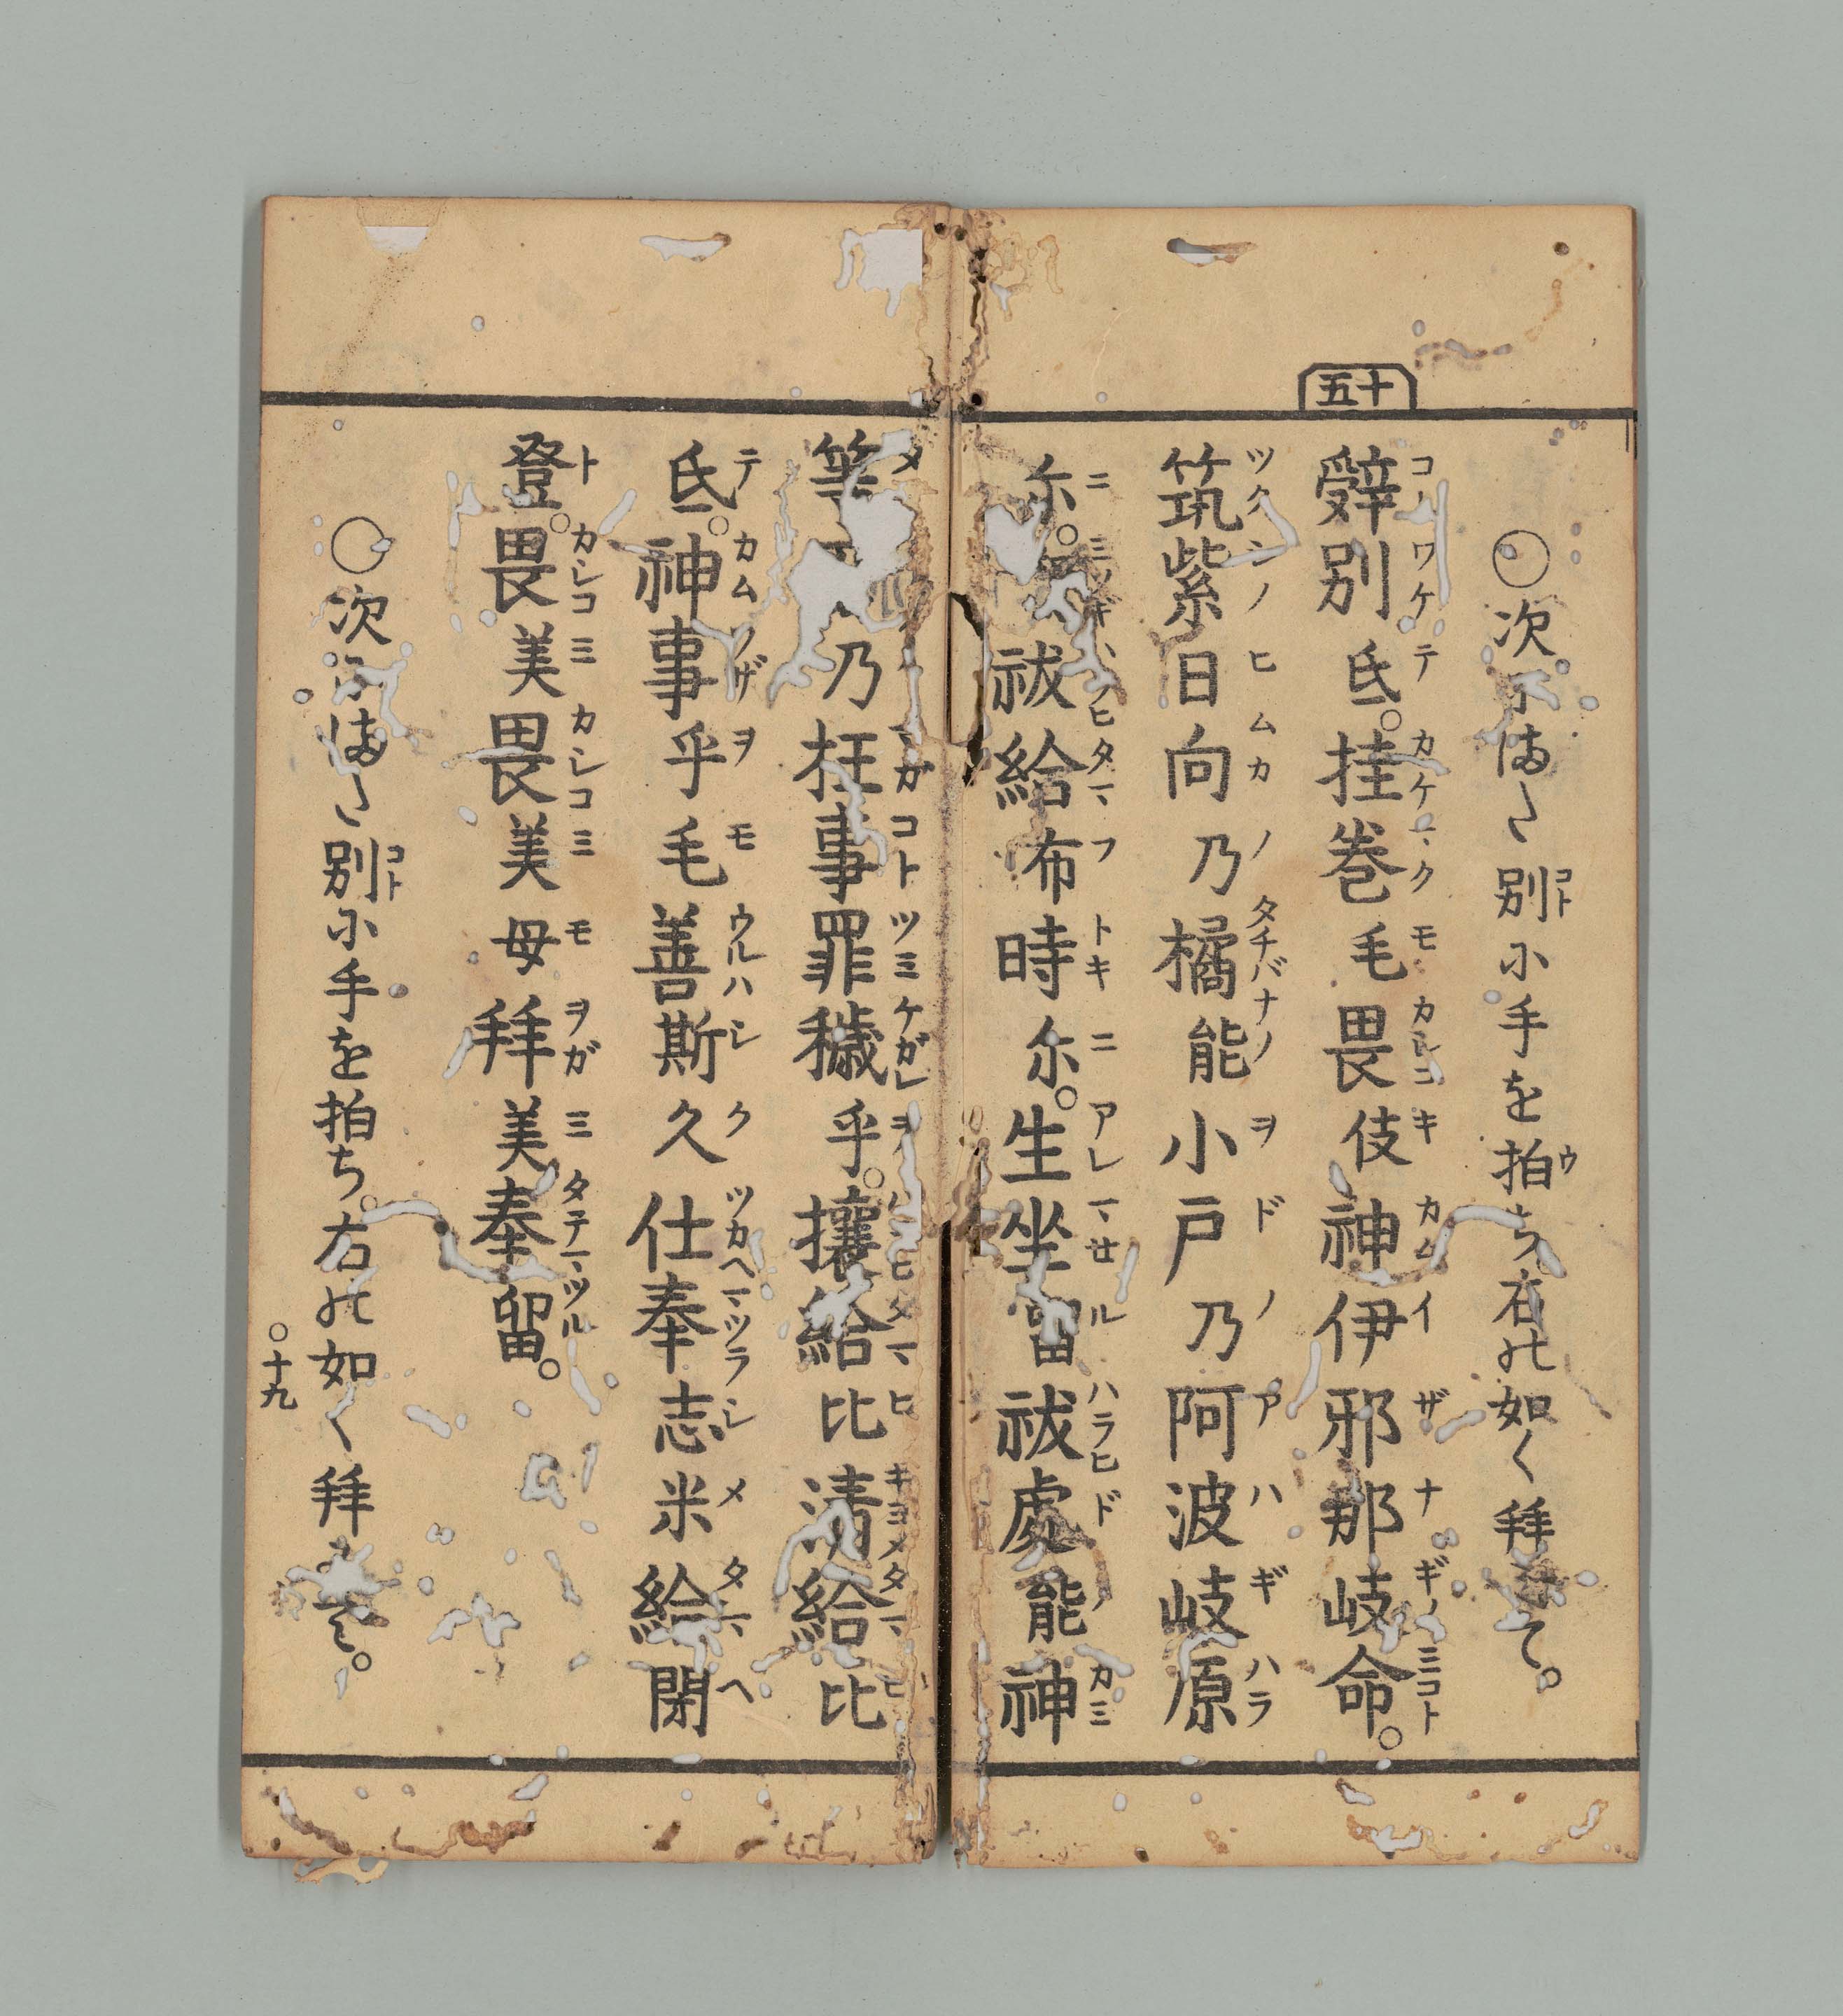 十五
○次小ま〱別小手を拍ち右の如く拜て。
辭別氐。挂巻毛畏伎神伊邪那岐命。
筑紫日向乃橘能小戸乃阿波岐原
尒。祓給布時尒。生坐留祓處能神
等乃枉事罪穢乎。攘給比清給比
氐。神事乎毛善斯久仕奉志米給閇
登。畏美畏美母拜美奉留。
○次小ま〱別小手を拍ち。右の如く拜て。
○十九